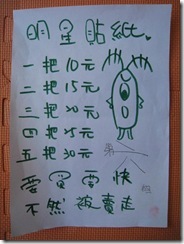 明星貼紙
一把10元
二把15元
三把20元
四把25元
五把30元
要買要快
不然被賣走